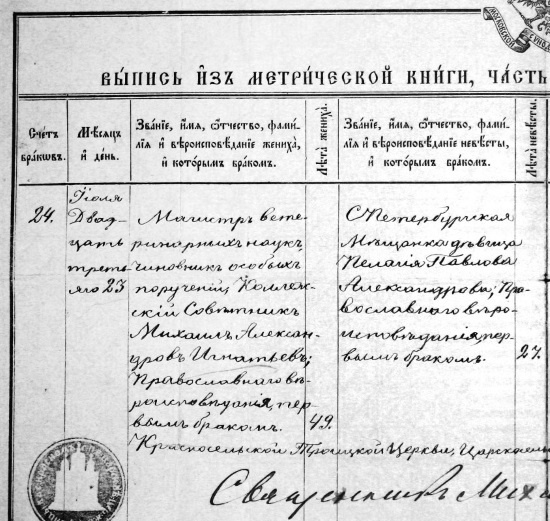 МОСКОВСКОЙ
ВЫ́ПИСЬ И҆ЗЪ МЕТРИ́ЧЕСКОЙ КНИ́ГИ, ЧА́СТЬ
Сче́тъ бра́ковъ.
Мѣ́сяцъ и҆ де́нь.
Зва́нїе, и҆́мя, ѻ҆́тчество, фами́-
лїя и҆ вѣроисповѣ́данїе жениха̀,
и҆ кото́рымъ бра́комъ.
Лѣ́та жениха̀.
Зва́нїе, и҆́мя, ѻ҆́тчество, фами́-
лїя и҆ вѣроисповѣ́данїе невѣ́сты,
и҆ кото́рымъ бра́комъ.
Лѣ́та невѣ́сты.
24.
Іюля
Двад
цать
треть
яго 23
Магистръ вете-
ринарныхъ наукъ,
чиновникъ особыхъ
порученій, Коллеж-
скій Совѣтникъ
Михаилъ Алексан-
дровъ Игнатьевъ;
Православнаго вѣ-
роисповѣданія, пер
вымъ бракомъ.
49.
С.Петербургская
Мѣщанка дѣвица
Пелагія Павлова
Александрова; Пра-
вославнаго вѣро-
исповѣданія, пер-
вымъ бракомъ.
27.
Красносельской Троицкой Церкви, Царскосельс
Священникъ Миха